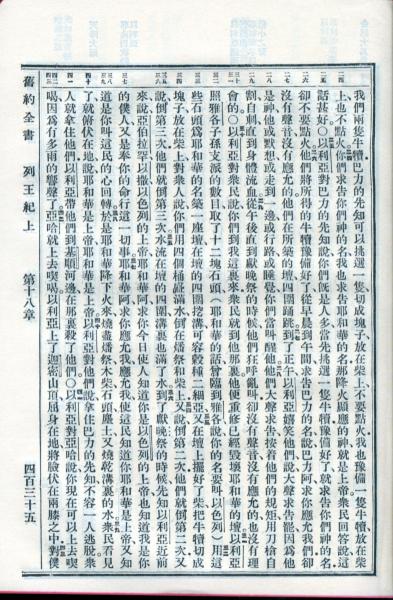 我們兩隻牛犢巴力的先知可以挑選一隻切成塊子放在柴上不要點火我也豫備一隻牛犢放在柴
上也不點火你們求告你們神的名我也求告耶和華的名那降火顯應的神就是上帝衆民回答說這
話甚好○以利亞對巴力的先知說你們旣是人多當先挑選一隻牛犢豫備好了就求告你們神的名
卻不要點火他們將所得的牛犢豫備好了從早晨到午間求告巴力的名說巴力阿求你應允我們卻
沒有聲音沒有應允的他們在所築的壇四圍踊跳到了正午以利亞嬉笑他們說大聲求告罷因爲他
是神他或默想或走到一邊或行路或睡覺你們當叫醒他他們大聲求告按着他們的規矩用刀槍自
割自刺直到身體流血從午後直到獻晚祭的時候他們狂呼亂叫卻沒有聲音沒有應允的也沒有理
會的○以利亞對衆民說你們到我這裏來衆民就到他那裏他便重修已經毀壞耶和華的壇以利亞
照雅各子孫支派的數目取了十二塊石頭（耶和華的話曾臨到雅各說你的名要叫以色列）用這
些石頭爲耶和華的名築一座壇在壇的四圍挖溝可容穀種二細亞又在壇上擺好了柴把牛犢切成
塊子放在柴上對衆人說你們用四個桶盛滿水倒在燔祭和柴上又說倒第二次他們就倒第二次又
說倒第三次他們就倒第三次水流在壇的四圍溝裏也滿了水到了獻晚祭的時候先知以利亞近前
來說亞伯拉罕以撒以色列的上帝耶和華阿求你今日使人知道你是以色列的上帝也知道我是你
的僕人又是奉你的命行這一切事耶和華阿求你應允我應允我使這民知道你耶和華是上帝又知
道是你叫這民的心回轉於是耶和華降下火來燒盡燔祭木柴石頭塵土又燒乾溝裏的水衆民看見
了就俯伏在地說耶和華是上帝耶和華是上帝以利亞對他們說拿住巴力的先知不容一人逃脫衆
人就拿住他們以利亞帶他們到基順河邊在那裏殺了他們○以利亞對亞哈說你現在可以上去喫
喝因爲有多雨的響聲了亞哈就上去喫喝以利亞上了迦密山頂屈身在地將臉伏在兩膝之中對僕
舊約全書 列王紀上 第十八章 四百三十五